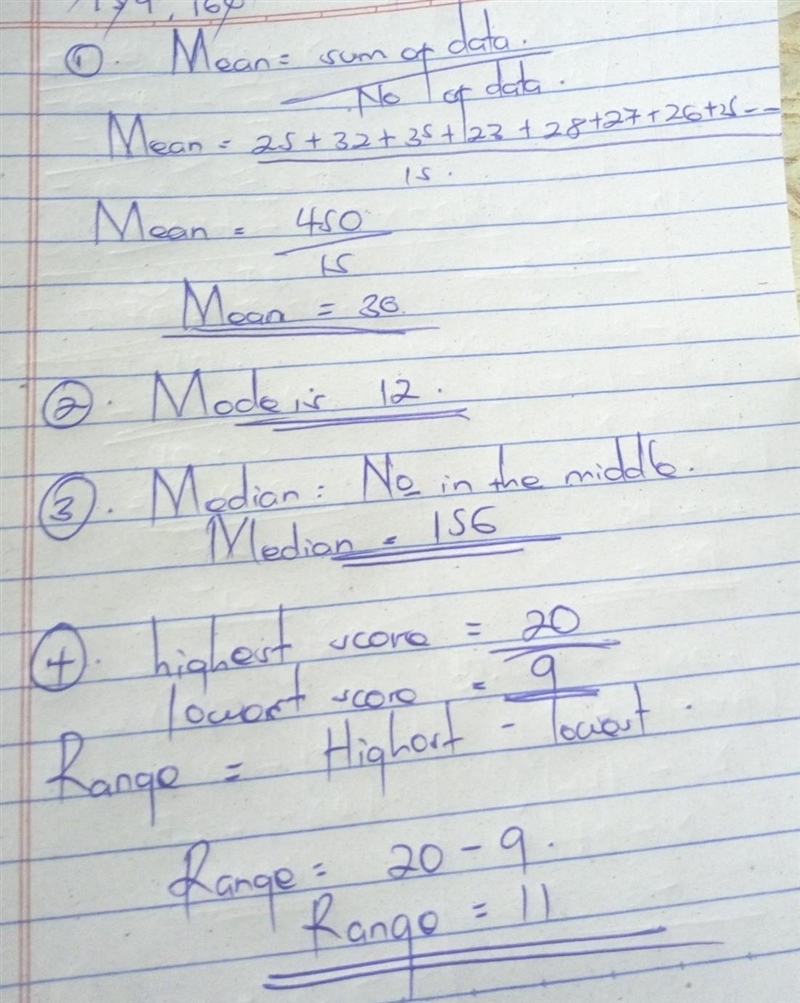 , 164
①. Mean = sum of data.
No of data.
Mean = 25 + 32 + 35 + 23 + 28 + 27 + 26 + 25 - -
15.
Mean = 450
15
Mean = 30.
②. Mode is 12.
③. Median: No in the middle.
Median = 156
④. highest score = 20
lowest score = 9
Range = Highest - lowest.
Range = 20 - 9.
Range = 11